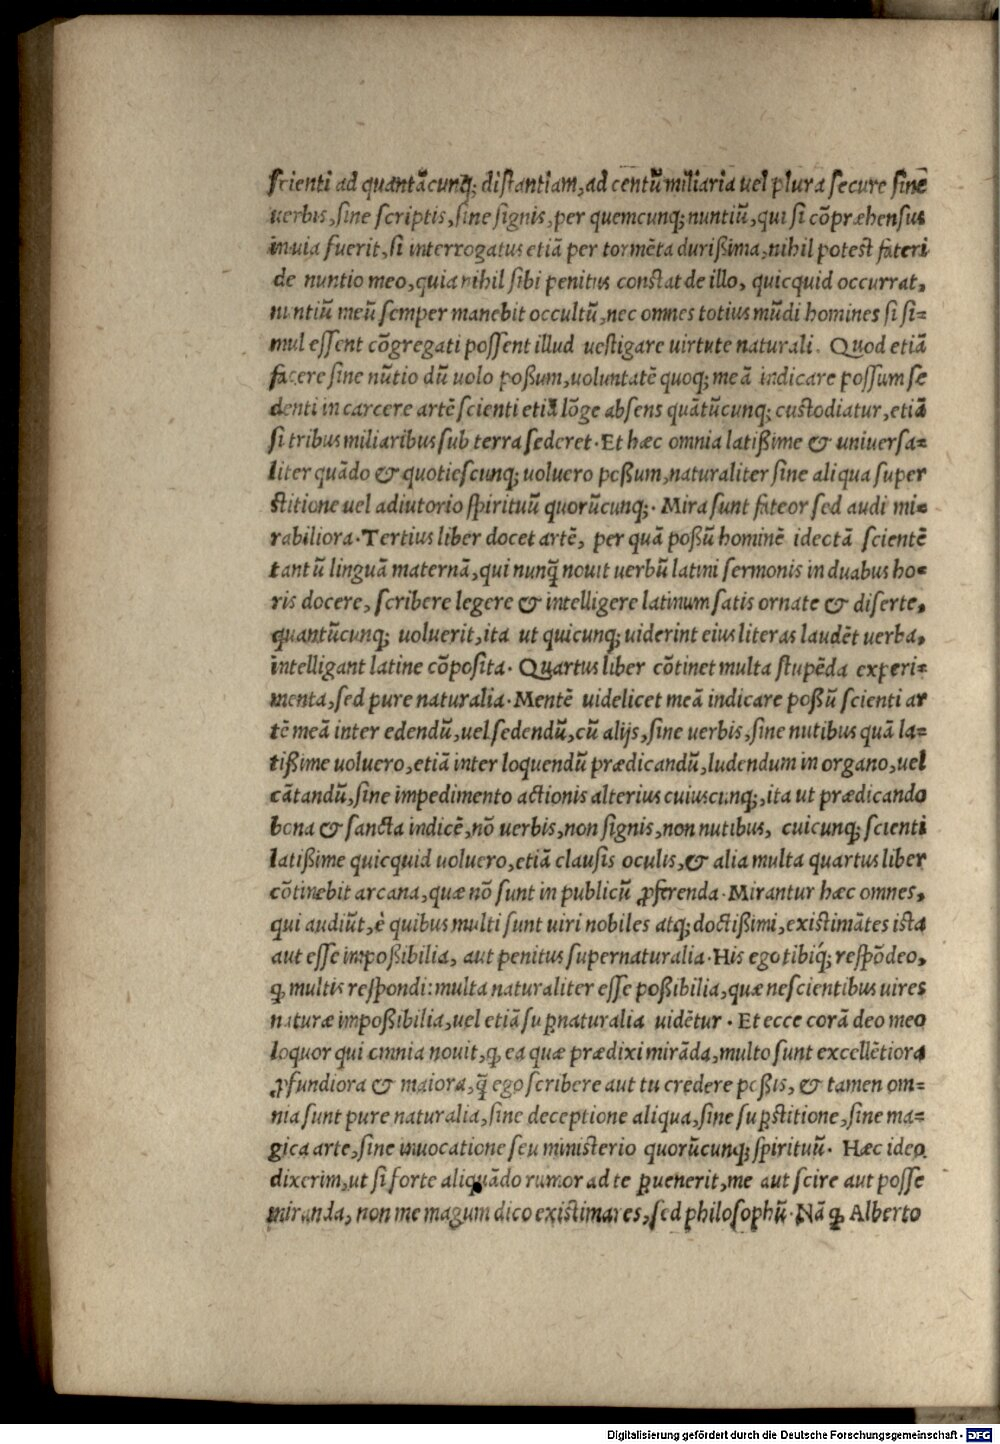 scienti ad quantãcunq; distantiam, ad centũ miliaria uel plura secure sine
uerbis, sine scriptis, sine signis, per quemcunq; nuntiũ, qui si cõpræhensus
in uia fuerit, si interrogatus etiã per tormẽta durißima, nihil potest fateri
de nuntio meo, quia nihil sibi penitus constat de illo, quicquid occurrat,
nuntiũ meũ semper manebit occultũ, nec omnes totius mũdi homines si si=
mul essent cõgregati possent illud uestigare uirtute naturali. Quod etiã
facere sine nũtio dũ uolo poßum, uoluntatẽ quoq; meã indicare possum se
denti in carcere artẽ scienti etiã lõge absens quãtũcunq; custodiatur, etiã
si tribus miliaribus sub terra sederet. Et hæc omnia latißime & uniuersa=
liter quãdo & quotiescunq; uoluero poßum, naturaliter sine aliqua super
stitione uel adiutorio spirituũ quorũcunq;. Mira sunt fateor sed audi mi=
rabiliora. Tertius liber docet artẽ, per quã poßũ hominẽ idectã scientẽ
tantũ linguã maternã, qui nunq̃ nouit uerbũ latini sermonis in duabus ho=
ris docere, scribere legere & intelligere latinum satis ornate & diserte,
quantũcunq; uoluerit, ita ut quicunq; uiderint eius literas laudẽt uerba,
intelligant latine cõposita. Quartus liber cõtinet multa stupẽda experi=
menta, sed pure naturalia. Mentẽ uidelicet meã indicare poßũ scienti ar
tẽ meã inter edendũ, uel sedendũ, cũ alijs, sine uerbis, sine nutibus quã la=
tißime uoluero, etiã inter loquendũ prædicandũ, ludendum in organo, uel
cãtandũ, sine impedimento actionis alterius cuiuscunq;, ita ut prædicando
bona & sancta indicẽ, nõ uerbis, non signis, non nutibus, cuicunq; scienti
latißime quicquid uoluero, etiã clausis oculis, & alia multa quartus liber
cõtinebit arcana, quæ nõ sunt in publicũ ꝓferenda. Mirantur hæc omnes,
qui audiũt, è quibus multi sunt uiri nobiles atq; doctißimi, existimãtes ista
aut esse impoßibilia, aut penitus supernaturalia. His ego tibiq́; respõdeo,
ꝙ multis respondi: multa naturaliter esse poßibilia, quæ nescientibus uires
naturæ impoßibilia, uel etiã suꝑnaturalia uidẽtur. Et ecce corã deo meo
loquor qui omnia nouit, ꝙ ea quæ prædixi mirãda, multo sunt excellẽtiora
ꝓfundiora & maiora, q̃ ego scribere aut tu credere poßis, & tamen om=
nia sunt pure naturalia, sine deceptione aliqua, sine suꝑstitione, sine ma=
gica arte, sine inuocatione seu ministerio quorũcunq; spirituũ. Hæc ideo
dixerim, ut si forte aliquãdo rumor ad te ꝑuenerit, me aut scire aut posse
miranda, non me magum dico existimares, sed philosophũ. Nã ꝙ Alberto
Digitalisierung gefördert durch die Deutsche Forschungsgemeinschaft - DFG